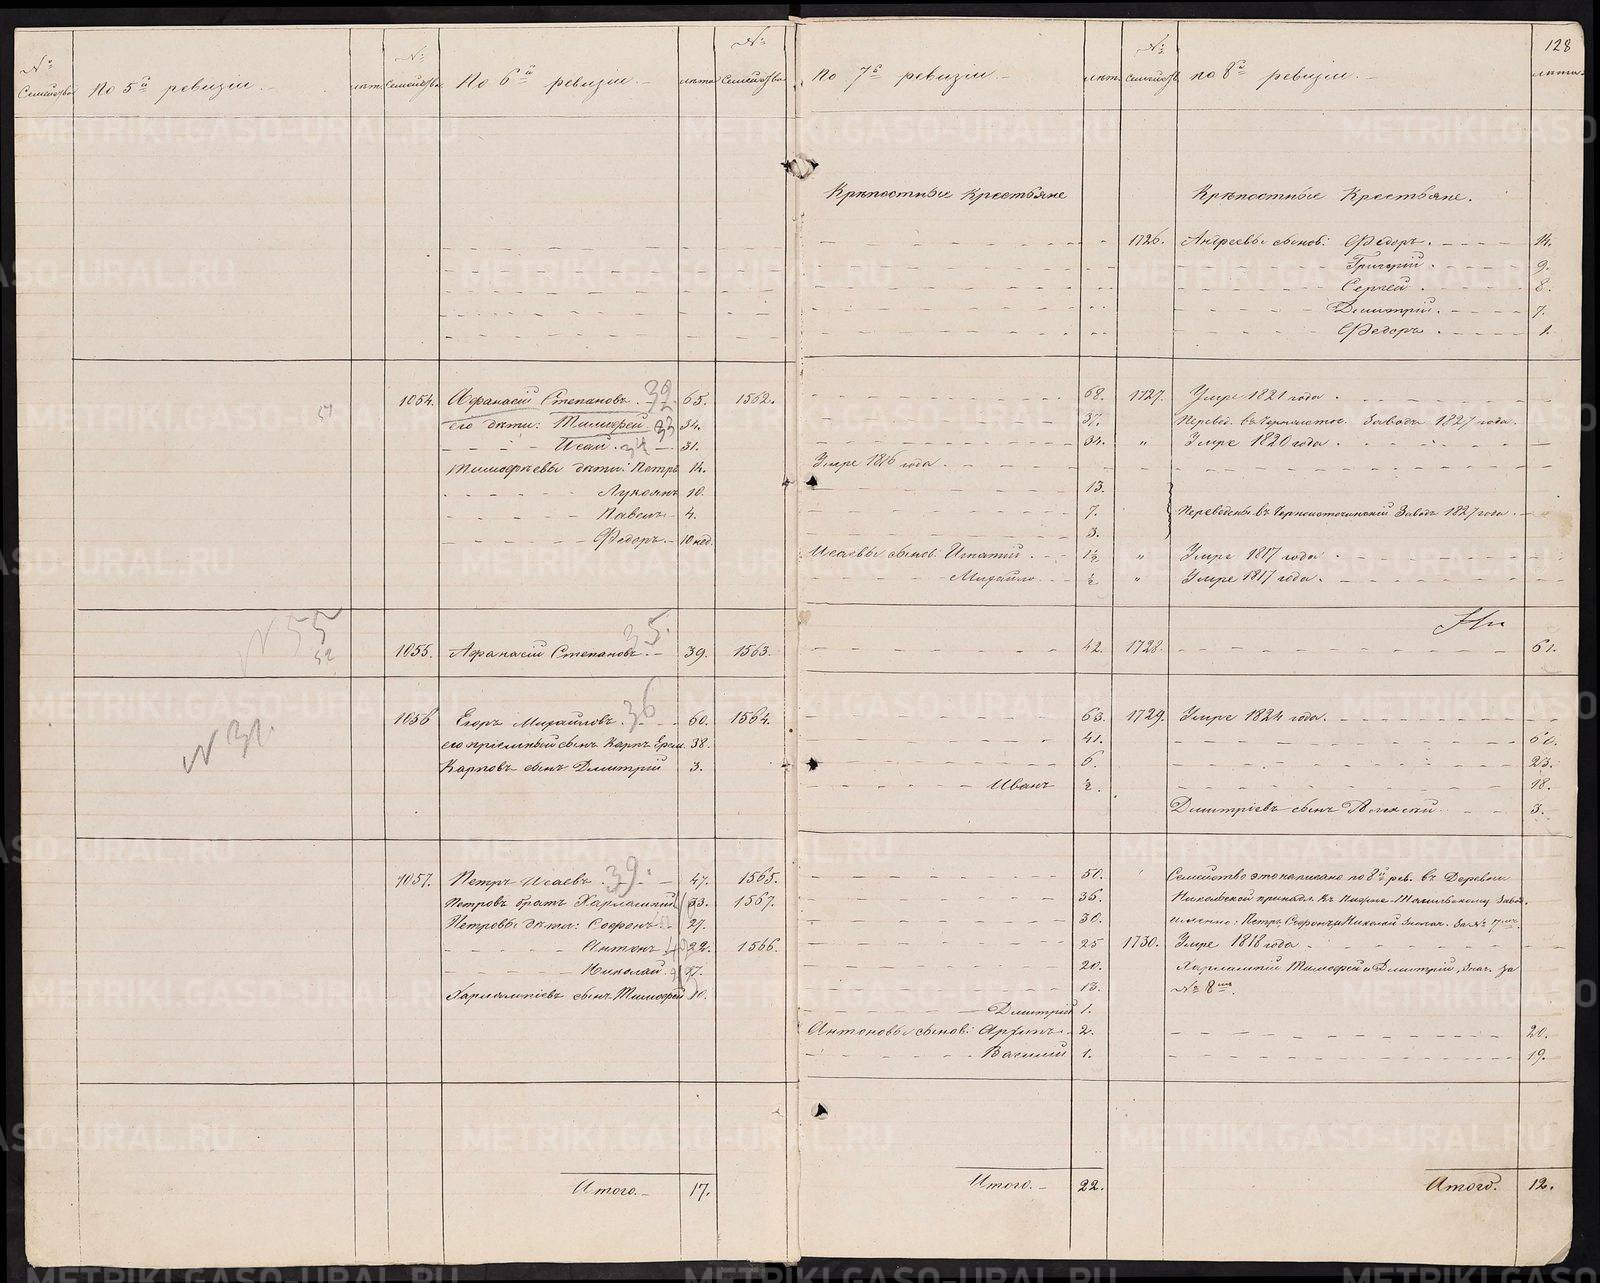 128
№ Семейства
По 5й ревизіи
лѣта
№ Семейства
По 6й ревизіи
лѣта
№ Семейства
По 7й ревизіи
лѣта
№ Семейства
по 8й ревизіи
лѣта
Крѣпостные Крестьяне
Крѣпостные Крестьяне.
1726. Андреевы сынов: Ѳедоръ. 14.
Григорій 9.
Сергей 8.
Дмитрій. 7.
Ѳедоръ 1.
51 1054. Афанасій Степановъ. 32 65. 1562. 68. 1727. Умре 1821 года
его дѣти: Тимофей 33 34. 37. Перевед. въ Черноисточ. Заводъ 1827 года.
Исай. 34 31. 34. " Умре 1820 года.
Тимофѣевы дѣти: Петръ 14. Умре 1816 года.
Лукоянъ 10. 13.
Павелъ 4. 7. Переведены въ Черноисточинскій Заводъ 1827 года.
Ѳедоръ 10 нед. 3.
Исаевы сынов: Игнатій 1½ " Умре 1817 года
Михайло ½ " Умре 1817 года.
N 55
52 35.
1055. Афанасій Степановъ. 39. 1563. 42. 1728. 61.
N 31.
1056 Егоръ Михайловъ. 36 60. 1564. 63. 1729. Умре 1824 года.
его пріемный сынъ Карпъ 38. 41.
Карповъ сынъ Дмитрій 3. 6. 23.
Иванъ ½. 18.
Дмитріевъ сынъ Алексей 3.
1057. Петръ Исаевъ 39. 47. 1565. 50. Семейство это написано по 8й рев. въ Деревни
Петровъ братъ Харлампій 33. 1567. 36. Никольской принадл. къ Нижне-Тагильскому Завод.
Петровы дѣти: Софонъ 27. 30. именно: Петръ, Софонъ и Николай значат. За № 7мъ.
Антонъ 22. 1566. 25 1730. Умре 1818 года
Николай 17. 20. Харлампій Тимофей и Дмитрій, Знач. за
Харлампіевъ сынъ Тимофей 10. 13. № 8мъ.
Дмитрій 1.
Антоновы сынов: Архипъ 2. 20.
Василій 1. 19.
Итого. 17. Итого. 22. Итого. 12.
METRIKI.GASO-URAL.RU